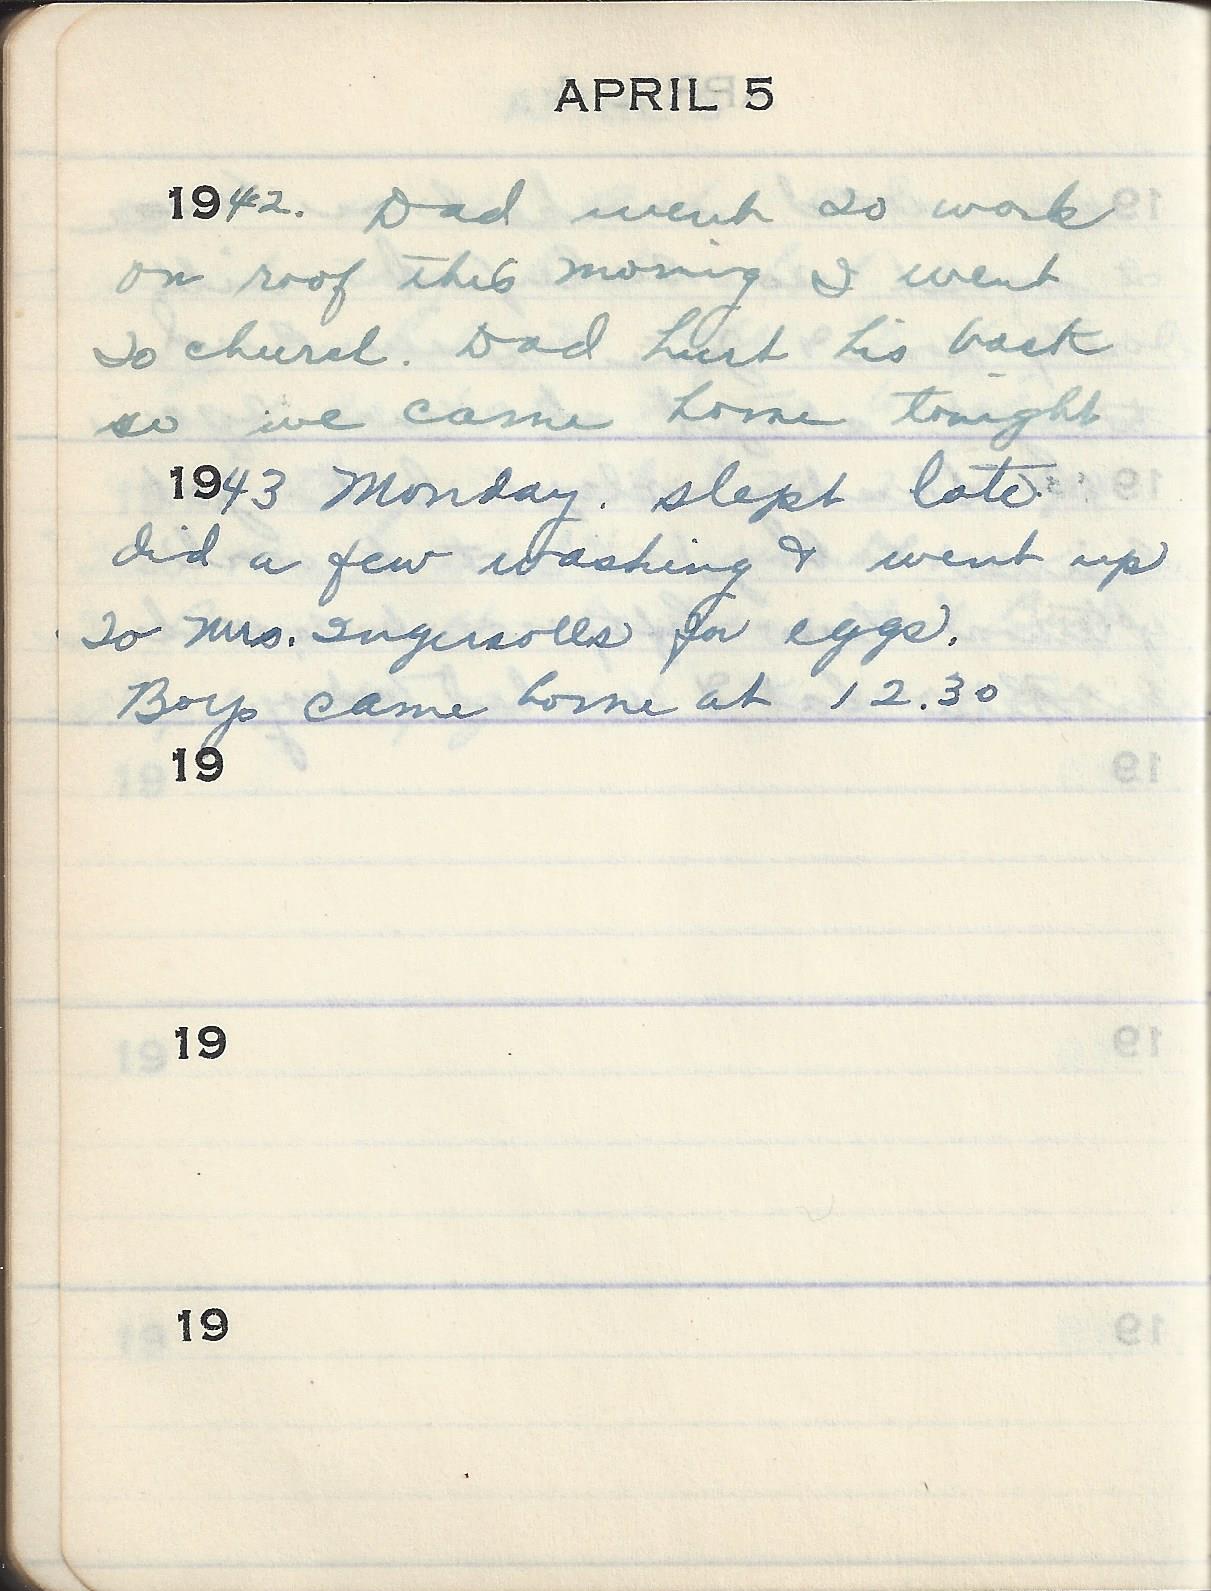 APRIL 5
1942. Dad went to work
on roof this morning I went
to church. Dad hurt his back
so we came home tonight
1943 Monday. slept late.
did a few washing & went up
to Mrs. Ingersolls for eggs.
Boys came home at 12.30
19
19
19